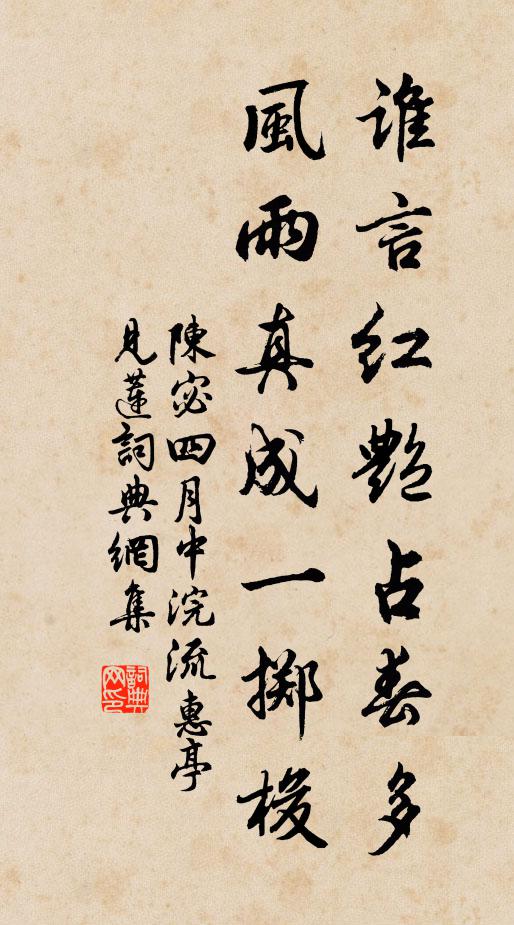 誰言紅艷占春多
風雨真成一擲梭
陳宓四月中浣流惠亭
見蓮詞典網集
詞典網印